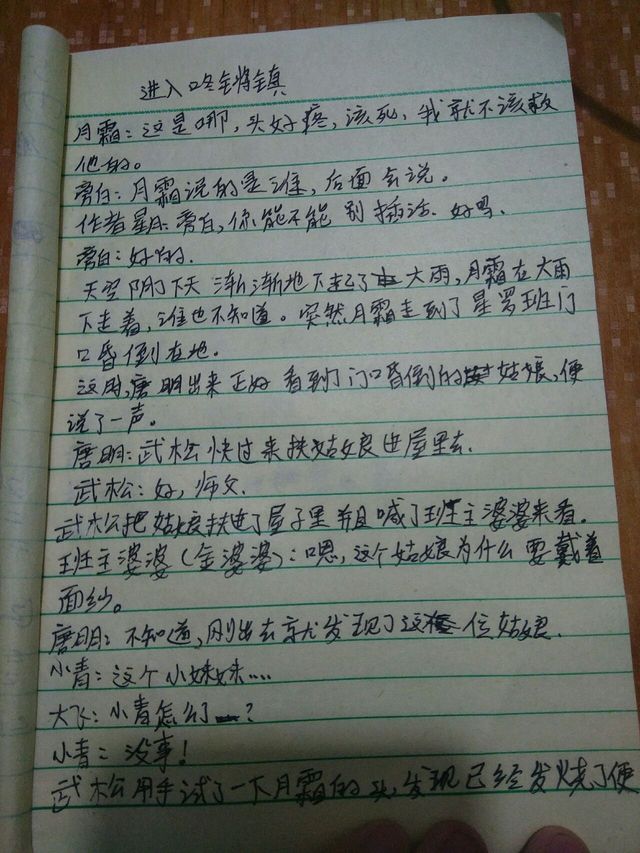 进入咚锵镇
月霜：这是哪，头好疼，该死，我就不该救
他的。
旁白：月霜说的是谁，后面会说。
作者星月：旁白，你能不能别插话．好吗．
旁白：好的．
天空阴下天渐渐地下起了大雨，月霜在大雨
下走着，谁也不知道。突然月霜走到了星罗班门
口昏倒在地。
这时，唐明出来正好看到了门口昏倒的姑娘，便
说了一声。
唐明：武松快过来扶姑娘进屋里去．
武松：好，师父．
武松把姑娘扶进了屋子里并且喊了班主婆婆来看。
班主婆婆（金婆婆）：嗯，这个姑娘为什么要戴着
面纱。
唐明：不知道，刚出去就发现了这位姑娘．
小青：这个小妹妹....
大飞：小青怎么了？
小青：没事！
武松用手试了一下月霜的头，发现已经发烧了便